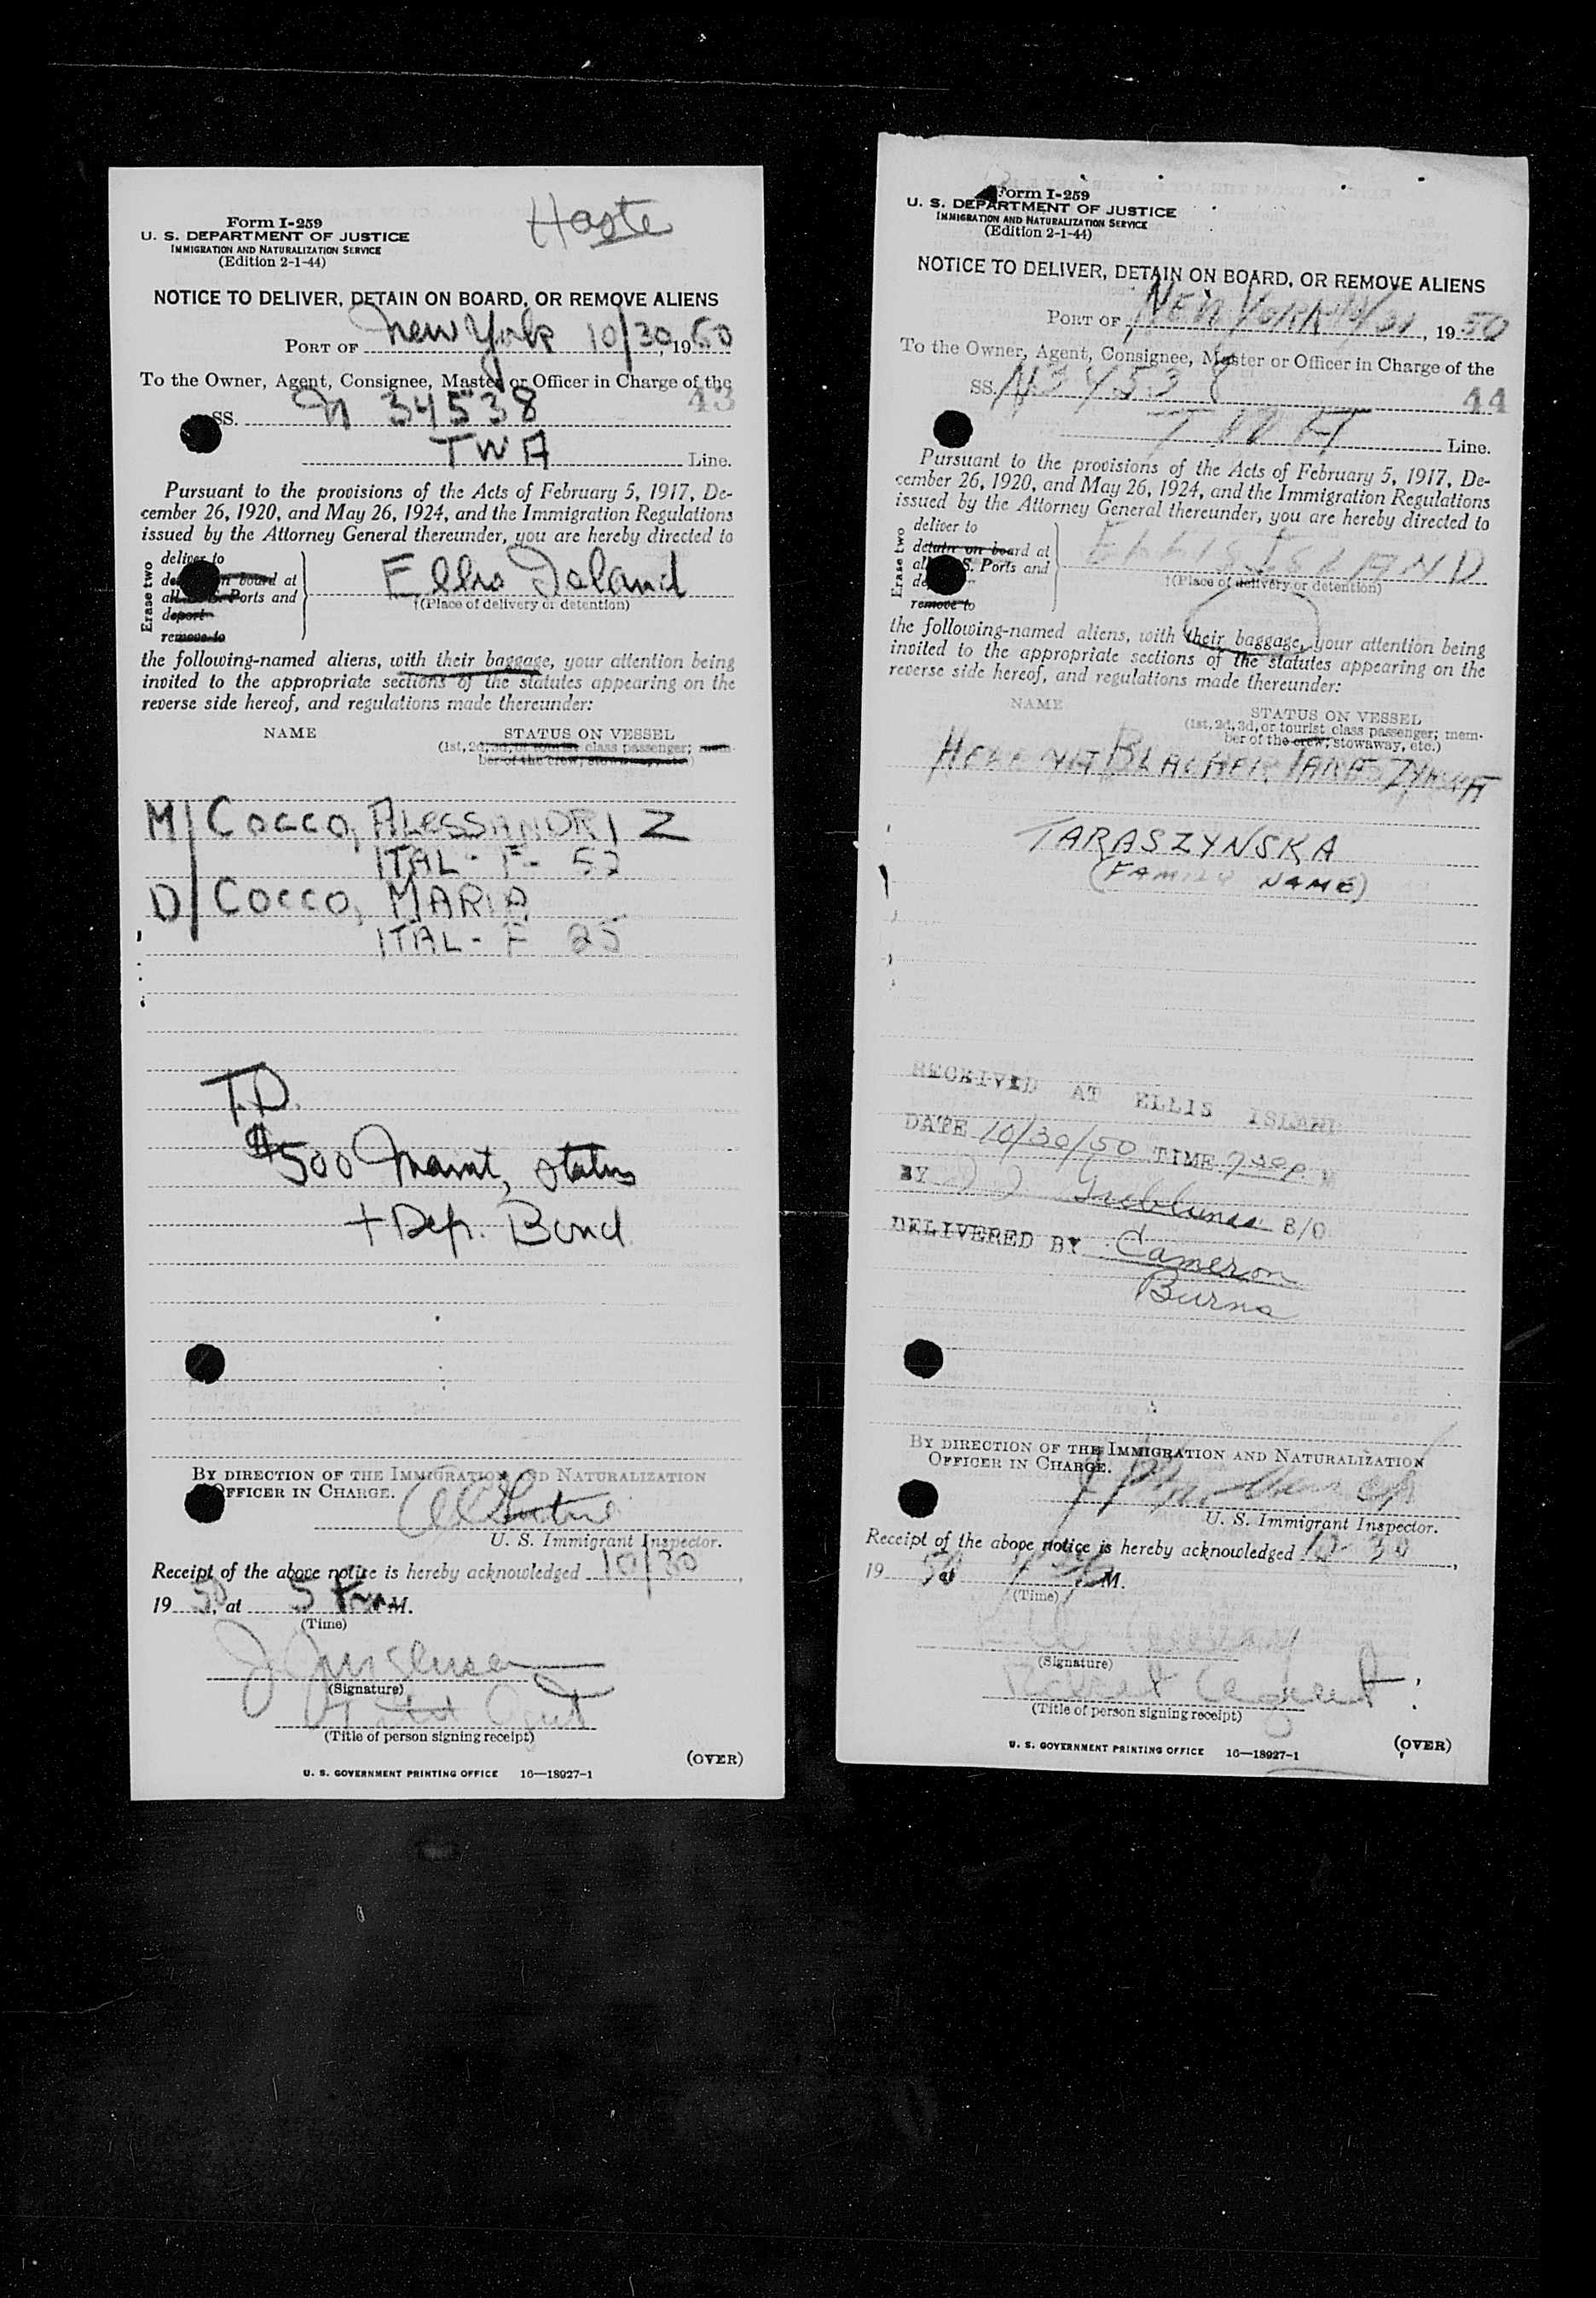 Haste
Form I-259
U. S. DEPARTMENT OF JUSTICE
IMMIGRATION AND NATURALIZATION SERVICE
(Edition 2-1-44)
NOTICE TO DELIVER, DETAIN ON BOARD, OR REMOVE ALIENS
PORT OF New York 10/30, 1950
To the Owner, Agent, Consignee, Master or Officer in Charge of the
43
SS. N 34538
TWA Line.
Pursuant to the provisions of the Acts of February 5, 1917, De-
cember 26, 1920, and May 26, 1924, and the Immigration Regulations
issued by the Attorney General thereunder, you are hereby directed to
Erase two
deliver to
on board at
all Ports and
deport
remove to
Ellis Island
†(Place of delivery or detention)
the following-named aliens, with their baggage, your attention being
invited to the appropriate sections of the statutes appearing on the
reverse side hereof, and regulations made thereunder:
NAME STATUS ON VESSEL
(1st, 2d, 3d, or tourist class passenger; mem-
ber of the crew, stowaway, etc.)
M COCCO, ALESSANDRI Z
ITAL - F - 52
D COCCO, MARIA
ITAL - F 25
T.D.
$500 Maint, status
+ Dep. Bond
BY DIRECTION OF THE IMMIGRATION AND NATURALIZATION
OFFICER IN CHARGE.
U. S. Immigrant Inspector.
Receipt of the above notice is hereby acknowledged 10/30,
1950, at 5 M.
(Time)
(Signature)
Agent
(Title of person signing receipt)
(OVER)
U. S. GOVERNMENT PRINTING OFFICE 16—18927-1
Form I-259
U. S. DEPARTMENT OF JUSTICE
IMMIGRATION AND NATURALIZATION SERVICE
(Edition 2-1-44)
NOTICE TO DELIVER, DETAIN ON BOARD, OR REMOVE ALIENS
PORT OF NEW YORK, 1950
To the Owner, Agent, Consignee, Master or Officer in Charge of the
SS. N34538 44
TWA Line.
Pursuant to the provisions of the Acts of February 5, 1917, De-
cember 26, 1920, and May 26, 1924, and the Immigration Regulations
issued by the Attorney General thereunder, you are hereby directed to
Erase two
deliver to
detain on board at
all S. Ports and
remove to
ELLIS ISLAND
†(Place of delivery or detention)
the following-named aliens, with their baggage, your attention being
invited to the appropriate sections of the statutes appearing on the
reverse side hereof, and regulations made thereunder:
NAME STATUS ON VESSEL
(1st, 2d, 3d, or tourist class passenger; mem-
ber of the crew, stowaway, etc.)
TARASZYNSKA
(FAMILY NAME)
RECEIVED AT ELLIS ISLAND
DATE 10/30/50 TIME M
BY B/O
DELIVERED BY Cameron
Burns
BY DIRECTION OF THE IMMIGRATION AND NATURALIZATION
OFFICER IN CHARGE.
U. S. Immigrant Inspector.
Receipt of the above notice is hereby acknowledged 10-30,
1950 at M.
(Time)
(Signature)
agent
(Title of person signing receipt)
U. S. GOVERNMENT PRINTING OFFICE 16—18927-1
(OVER)